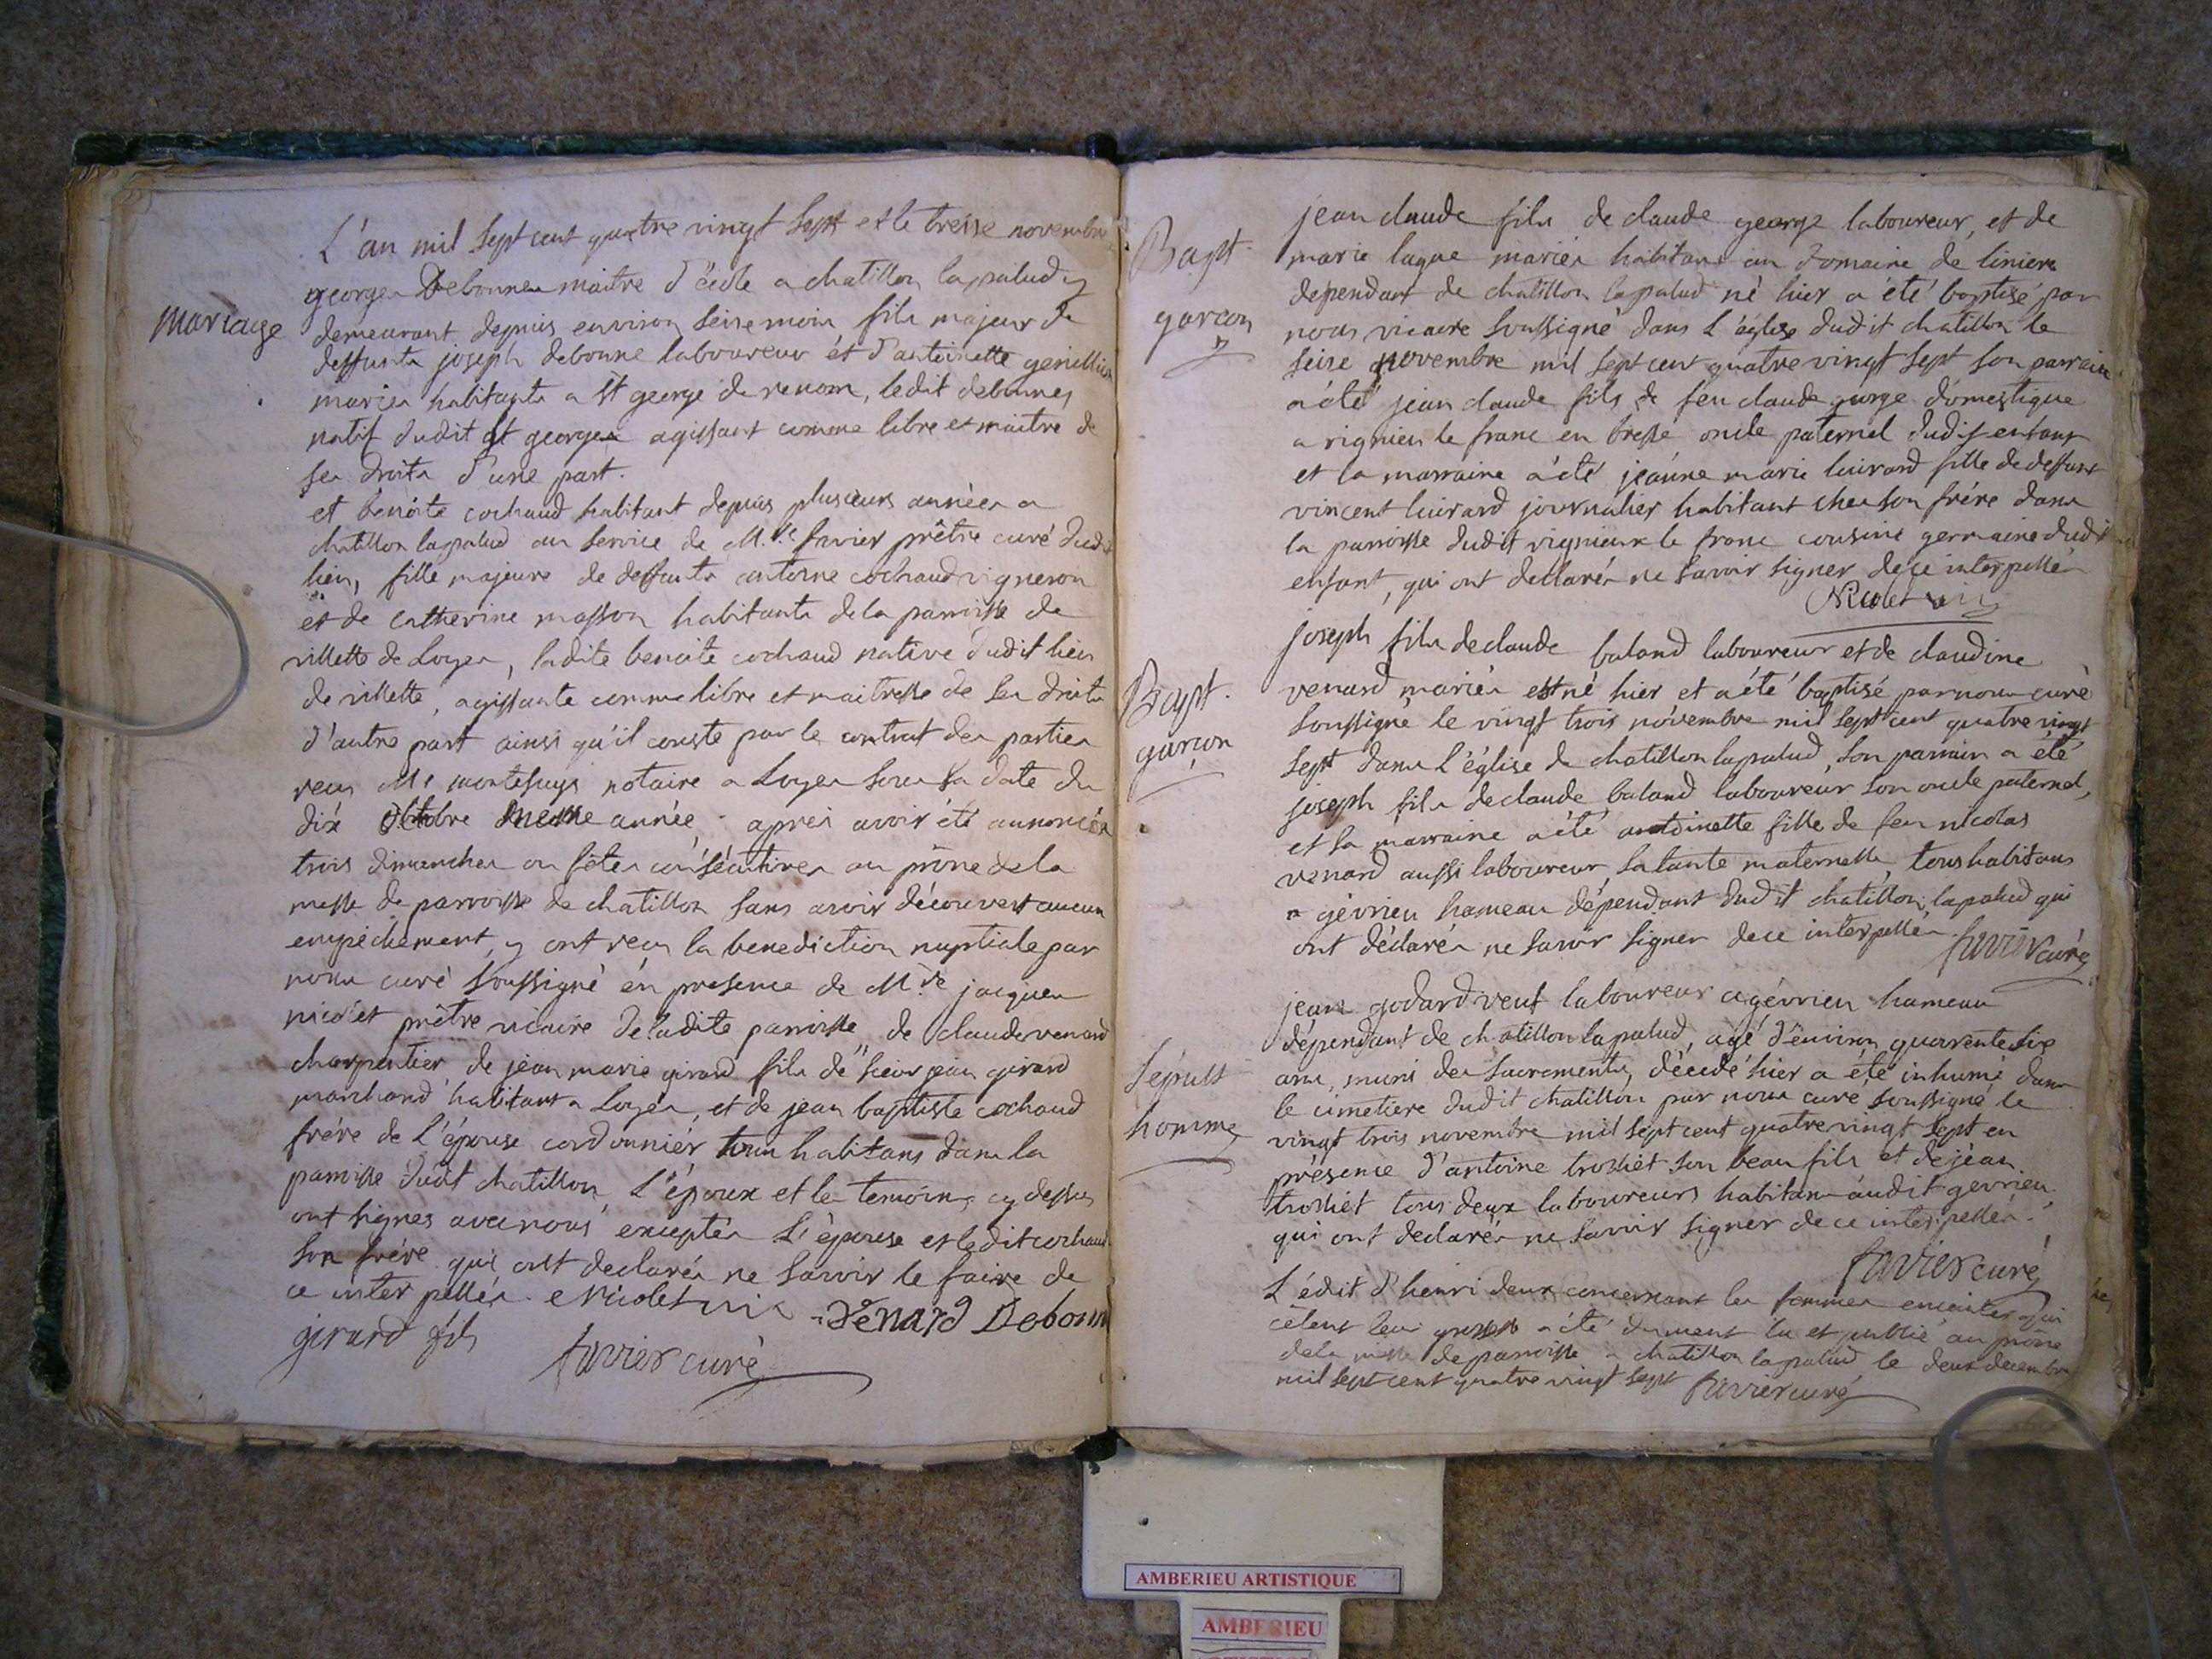 L'an mil sept cent quatre vingt sept et le treise novembre
mariage
georges Debonnes maitre d'école a chatillon lapalud y
demeurant depuis environ seise mois fils majeur de
deffunts joseph debonne laboureur et d'antoinette
mariés habitants a st george de renom, ledit debonnes
natif dudit st georges agissant comme libre et maitre de
ses droits d'une part.
et benoite cochaud habitant depuis plusieurs années a
chatillon lapalud au service de M.re favier prêtre curé dudit
lieu, fille majeure de deffunts antoine cochaud vigneron
et de catherine masson habitants de la parroisse de
villette de Loyes, ladite benoite cochaud native dudit lieu
de villette, agissante comme libre et maitresse de ses droits
d'autre part ainsi qu'il conste par le contrat des parties
reçu Me montesuys notaire a Loyes sous sa date du
dix octobre meme année. après avoir été annoncés
trois dimanches ou fêtes consécutives au prône de la
messe de parroisse de chatillon sans avoir découvert aucun
empêchement, y ont reçu la benediction nuptiale par
nous curé soussigné en presence de M.re jacques
nicolet prêtre vicaire de ladite parroisse, de claude venard
charpentier de jean marie girard fils de sieur jean girard
marchand habitant a Loyes, et de jean baptiste cochaud
frére de l'épouse cordonniér tous habitans dans la
parroisse dudit chatillon. L'époux et les temoins cy dessus
ont signes avec nous exceptés l'épouse et ledit cochaud
son frére qui ont declarés ne savoir le faire de
ce interpellés. Nicolet vic. venard Debonn
girard fils favier curé
Bapt.
garcon
jean claude fils de claude george laboureur, et de
marie lague mariés habitans au domaine de linieres
dependant de chatillon lapalud né hier a été baptisé par
nous vicaire soussigné dans l'église dudit chatillon le
seise novembre mil sept cent quatre vingt sept son parrain
a été jean claude fils de feu claude george domestique
a rignieu le franc en bresse oncle paternel dudit enfant
et la marraine a été jeanne marie luirard fille de deffunt
vincent luirard journalier habitant ches son frére dans
la parroisse dudit rignieux le franc cousine germaine dudit
enfant, qui ont declarés ne savoir signer de ce interpellés
Nicolet vic
Bapt.
garçon
joseph fils de claude baland laboureur et de claudine
venard mariés est né hier et a été baptisé par nous curé
soussigné le vingt trois novembre mil sept cent quatre vingt
sept dans l'église de chatillon lapalud, son parrain a été
joseph fils de claude baland laboureur son oncle paternel,
et sa marraine a été antoinette fille de feu nicolas
venard aussi laboureur, sa tante maternelle, tous habitans
a gévrieu hameau dépendant dudit chatillon lapalud qui
ont déclarés ne savoir signer de ce interpellés. favier curé
Sépult
homme
jean godard veuf laboureur a gévrieu hameau
dépendant de chatillon lapalud, agé d'environ quarente six
ans, muni des sacrements, décedé hier a été inhumé dans
le cimetiere dudit chatillon par nous curé soussigné le
vingt trois novembre mil sept cent quatre vingt sept en
présence d'antoine trolliet son beau fils et de jean
trolliet tous deux laboureurs habitans audit gevrieu
qui ont declarés ne savoir signer de ce interpellés.
favier curé
L'édit d'henri deux concernant les femmes enceintes qui
cèlent leur grossesse a été dument lu et publié au prône
de la messe de parroisse a chatillon lapalud le deux decembre
mil sept cent quatre vingt sept favier curé
AMBERIEU ARTISTIQUE
AMBERIEU